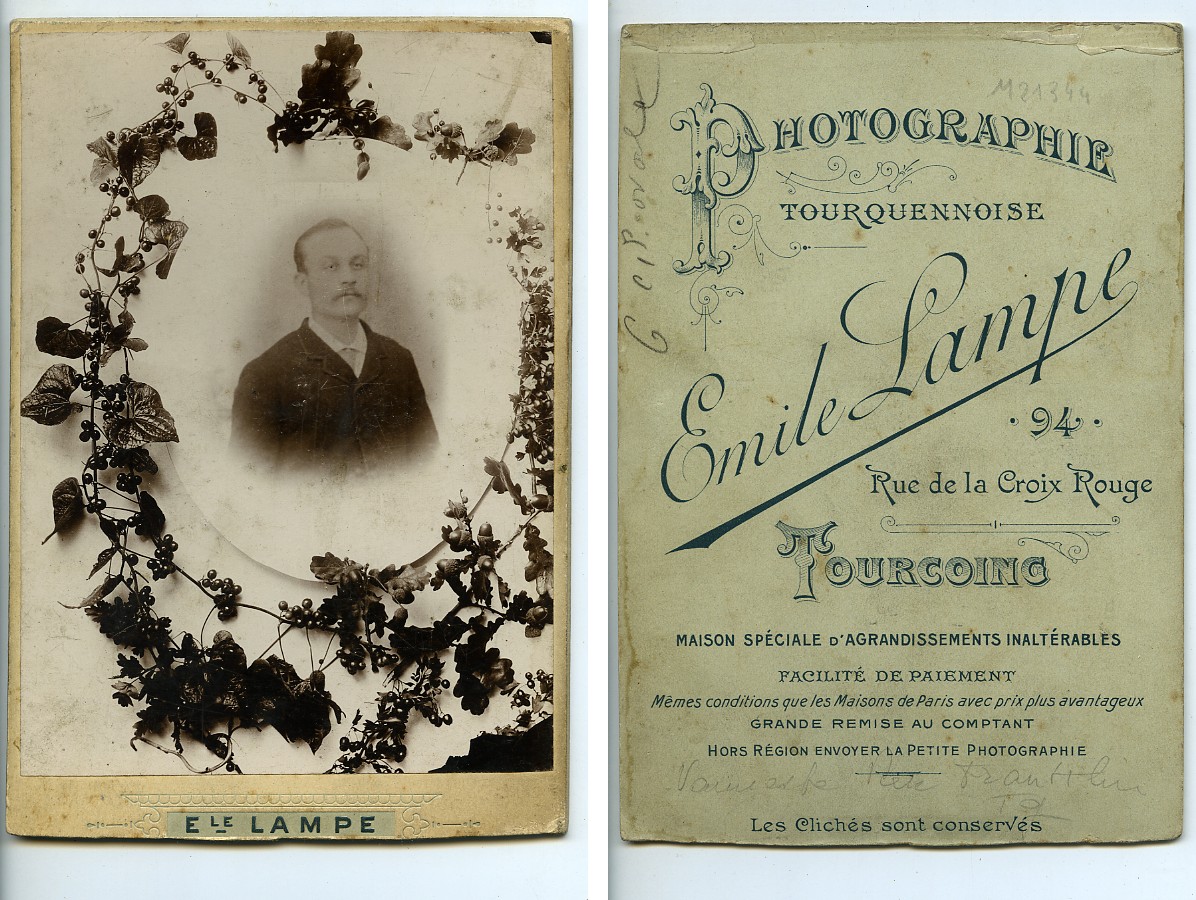 ELE LAMPE
M21344
PHOTOGRAPHIE
TOURQUENNOISE
Emile Lampe
· 94 ·
Rue de la Croix Rouge
TOURCOING
MAISON SPÉCIALE D'AGRANDISSEMENTS INALTÉRABLES
FACILITÉ DE PAIEMENT
Mêmes conditions que les Maisons de Paris avec prix plus avantageux
GRANDE REMISE AU COMPTANT
HORS RÉGION ENVOYER LA PETITE PHOTOGRAPHIE
Les Clichés sont conservés